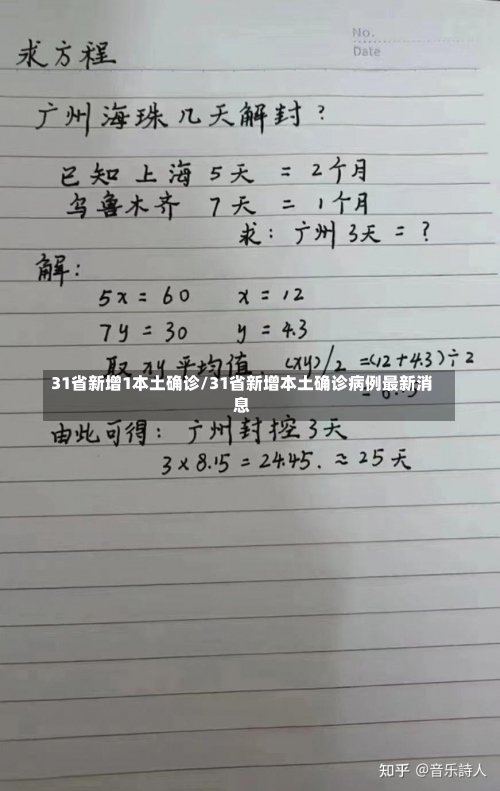 No.
Date
求方程
广州海珠几天解封?
已知上海5天 = 2个月
乌鲁木齐 7天 = 1个月
求: 广州3天 = ?
解:
5x = 60 x = 12
7y = 30 y = 4.3
取 xy 平均值, (xy)/2 =(12+4.3)÷2
31省新增1本土确诊/31省新增本土确诊病例最新消
息
由此可得: 广州封控3天
3×8.15=24.45. ≈25天
知乎 @音乐詩人